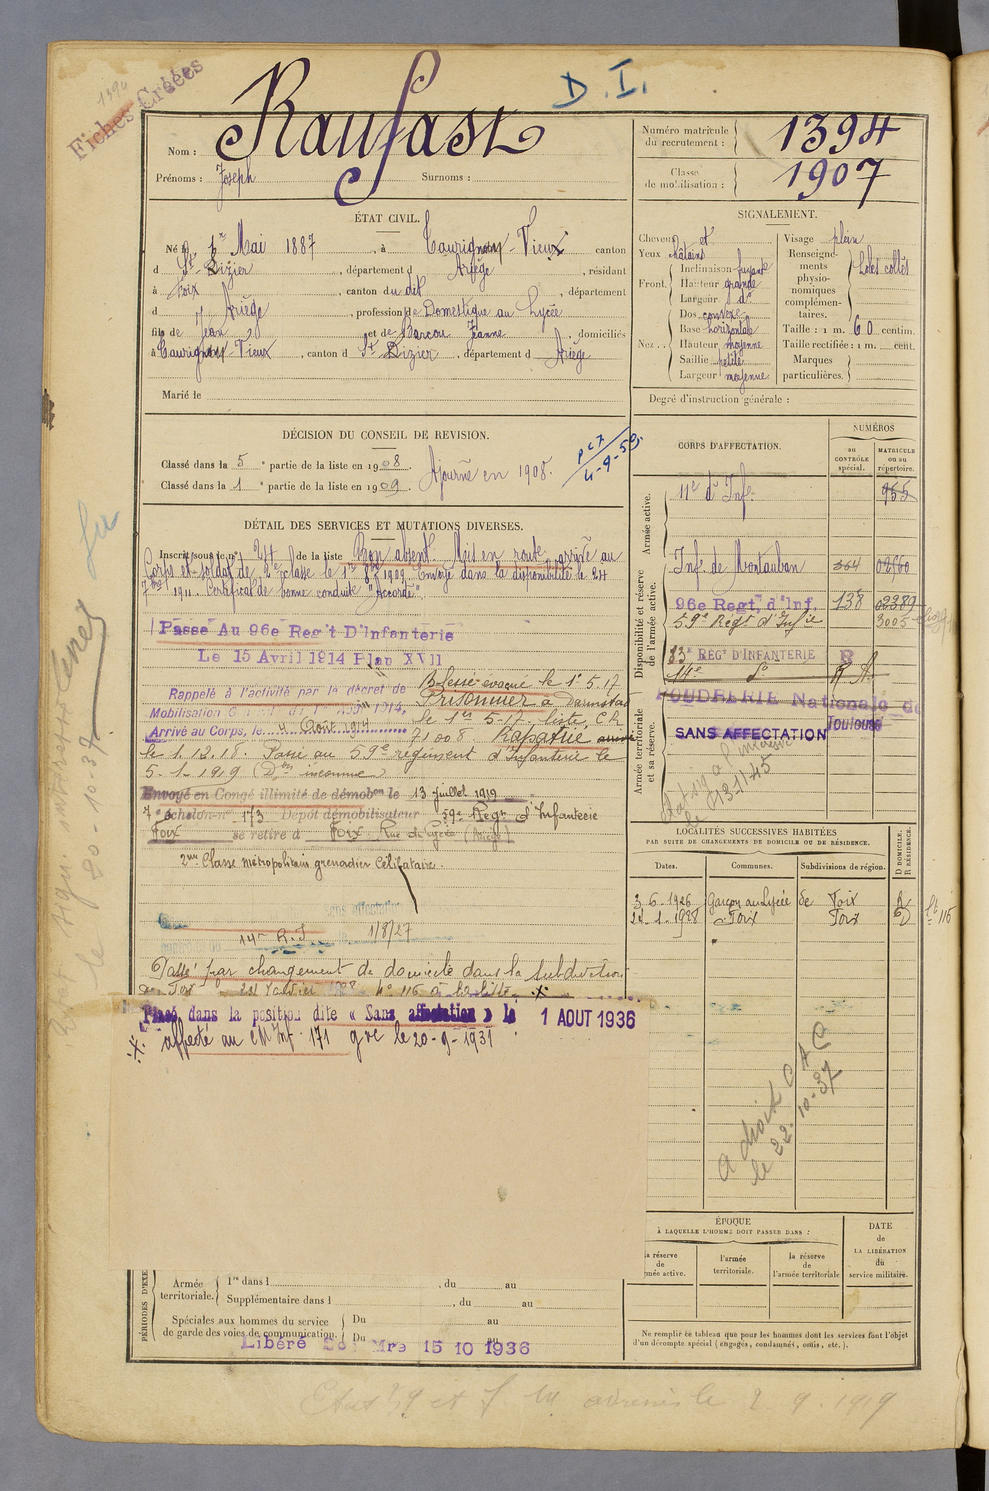 1394
Fiches Créées
D.I.
Nom : Raufast
Prénoms : Joseph Surnoms :
Numéro matricule du recrutement : 1394
Classe de mobilisation : 1907
ÉTAT CIVIL.
Né le 1er Mai 1887, à Taurignan-Vieux canton
d St Lizier, département d Ariège, résidant
à Foix, canton du dit, département
d Ariège, profession de Domestique au Lycée
fils de Jean et de Barcou Jeanne, domiciliés
à Taurignan-Vieux, canton d St Lizier, département d Ariège
Marié le
SIGNALEMENT.
Cheveux et
Yeux châtains
Front. Inclinaison fuyante
Hauteur grande
Largeur do
Nez. Dos convexe
Base horizontale
Hauteur moyenne
Saillie petite
Largeur moyenne
Visage plein
Renseignements physionomiques complémentaires. Lobes collés
Taille : 1 m. 60 centim.
Taille rectifiée : 1 m. cent.
Marques particulières.
Degré d'instruction générale :
DÉCISION DU CONSEIL DE REVISION.
Classé dans la 5e partie de la liste en 1908
Ajourné en 1908.
Classé dans la 1e partie de la liste en 1909
4-9-53
CORPS D'AFFECTATION.
NUMÉROS
au CONTRÔLE spécial.
MATRICULE ou au répertoire.
Armée active.
11e d'Inf. 955
Disponibilité et réserve de l'armée active.
Inf. de Montauban 364 02560
96e Regt d'Inf. 138 02389
59e Regt d'Infie 3005
83e REGt D'INFANTERIE R
14e do R A
Armée territoriale et sa réserve.
POUDRERIE Nationale de Toulouse
SANS AFFECTATION
DÉTAIL DES SERVICES ET MUTATIONS DIVERSES.
Inscrit sous le no 24 de la liste Bon absent. Mis en route, arrivé au
Corps et soldat de 2e classe le 1er 8bre 1909. Envoyé dans la disponibilité le 24
7bre 1911. Certificat de bonne conduite "Accordé".
Passé Au 96e Reg't D'Infanterie
Le 15 Avril 1914 Plan XVII
Rappelé à l'activité par le décret de
Mobilisation Générale du 1er Août 1914,
Arrivé au Corps, le 4 Août 1914
Blessé évacué le 1er 5-17
Prisonnier à Darmstad
le 1er 5-17. liste CR
71008 Rapatrié
le 1.12.18. Passé au 59e régiment d'Infanterie le
5-1-1919 (Don inconnue)
Envoyé en Congé illimité de démobon le 13 juillet 1919
7e échelon no 173 Dépôt démobilisateur 59e Regt d'Infanterie
Foix se retire à Foix. Rue du Lycée (Ariège)
2me Classe métropolitain grenadier Célibataire.
sans affectation
14e R.I. 1/8/27
Passé par changement de domicile dans la subdivision
de Foix no 116 à la liste
Placé dans la position dite « Sans affectation » le 1 AOUT 1936
affecté au CM Inf 171 gve le 20-9-1931
LOCALITÉS SUCCESSIVES HABITÉES
PAR SUITE DE CHANGEMENTS DE DOMICILE OU DE RÉSIDENCE.
Dates. Communes. Subdivisions de région. D DOMICILE. R RÉSIDENCE.
3-6-1926 Garçon au Lycée de Foix R
24-1-1928 Foix Foix D
116
a droit C A C
le 22.10.37
le 20-10-37
ÉPOQUE
À LAQUELLE L'HOMME DOIT PASSER DANS :
la réserve de l'armée active.
l'armée territoriale.
la réserve de l'armée territoriale
DATE de LA LIBÉRATION du service militaire.
Ne remplir ce tableau que pour les hommes dont les services font l'objet
d'un décompte spécial (engagés, condamnés, omis, etc.).
Armée territoriale.
1re dans l , du au
Supplémentaire dans l , du au
Spéciales aux hommes du service de garde des voies de communication.
Du au
Du au
Libéré Sce Mre 15 10 1936
2 9. 1919